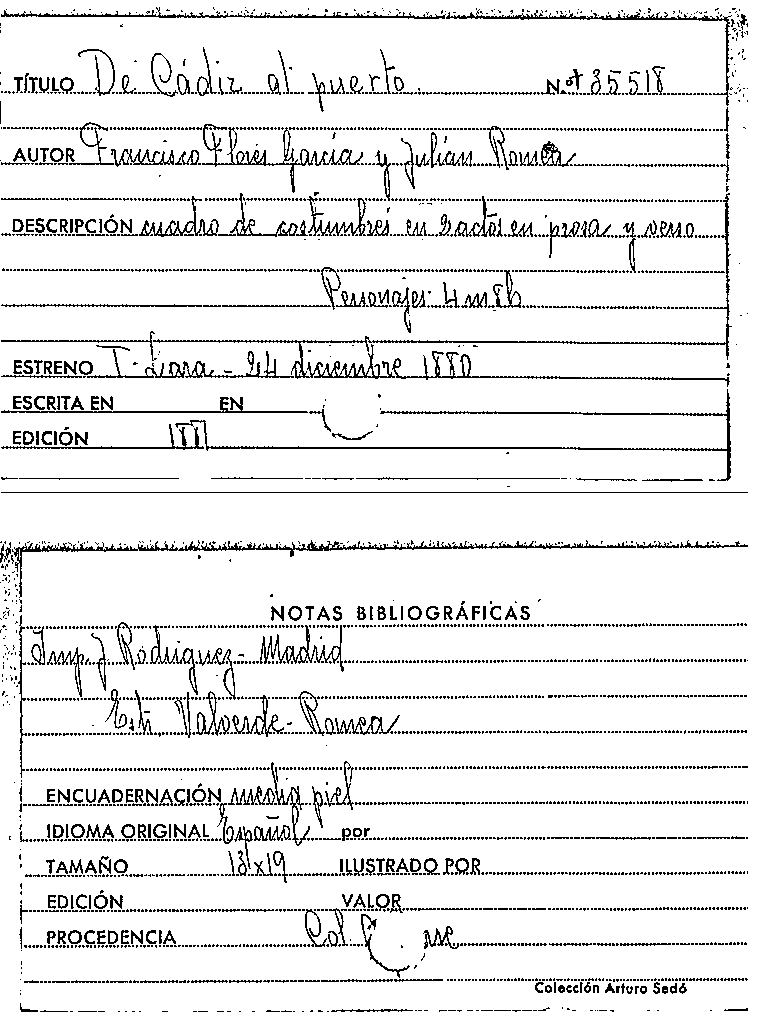 TÍTULO De Cádiz al puerto. N.º 35518
AUTOR Francisco Flores García y Julián Romea
DESCRIPCIÓN cuadro de costumbres en 2 actos en prosa y verso
Personajes: 4 m 8 h
ESTRENO T. Lara - 24 diciembre 1880
ESCRITA EN EN
EDICIÓN 1881
NOTAS BIBLIOGRÁFICAS
Imp. J Rodriguez - Madrid
Est. Valverde - Romea
ENCUADERNACIÓN media piel
IDIOMA ORIGINAL Español por
TAMAÑO 13x19 ILUSTRADO POR
EDICIÓN VALOR
PROCEDENCIA Col.
Colección Arturo Sedó